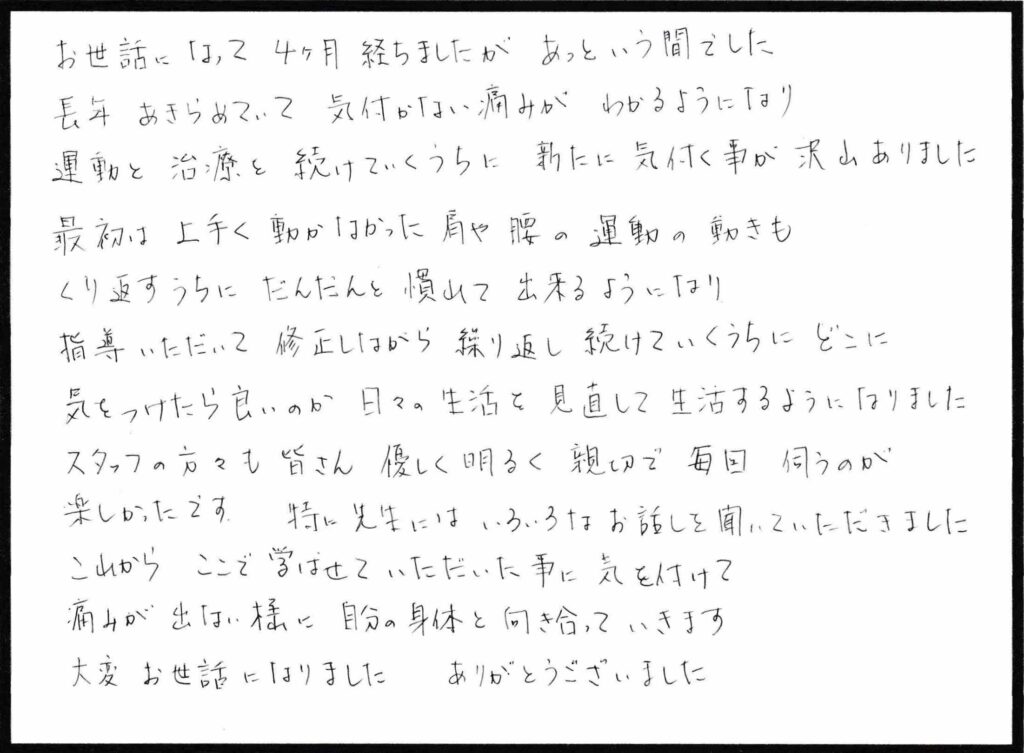 お世話になって 4ヶ月 経ちましたが あっという間でした
長年 あきらめていて 気付かない痛みが わかるようになり
運動と 治療を 続けていくうちに 新たに 気付く事が 沢山ありました
最初は 上手く 動かなかった 肩や 腰の 運動の 動きも
くり返すうちに だんだんと 慣れて 出来るようになり
指導いただいて 修正しながら 繰り返し 続けていくうちに どこに
気をつけたら良いのか 日々の 生活を 見直して 生活するようになりました
スタッフの方々も 皆さん 優しく 明るく 親切で 毎回 伺うのが
楽しかったです 特に先生には いろいろな お話しを 聞いていただきました
これから ここで 学ばせて いただいた 事に 気を付けて
痛みが 出ない様に 自分の 身体と 向き合って いきます
大変 お世話になりました ありがとうございました